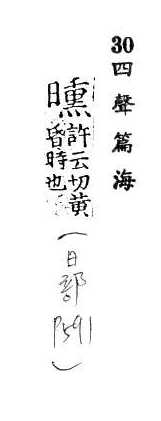 30四聲篇海
曛許云切黃
昏時也
(日部
P591)